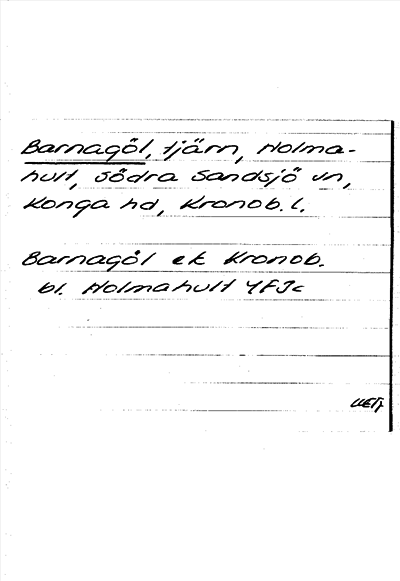 Barnagöl, tjärn, Holma-
hult, Södra Sandsjö sn,
Konga hd, Kronob. l.
Barnagöl ek Kronob.
bl. Holmahult 4F3c